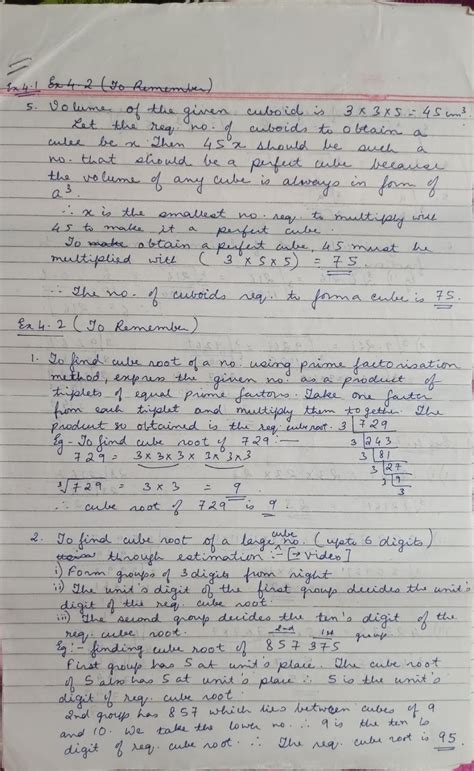 Ex 4.1 Ex 4.2 (To Remember)
5. Volume of the given cuboid is 3 x 3 x 5 = 45 cm³
Let the req. no. of cuboids to obtain a
cube be x. Then 45 x should be such a
no. that should be a perfect cube because
the volume of any cube is always in form of
a³.
∴ x is the smallest no. req. to multiply with
45 to make it a perfect cube.
To make obtain a perfect cube, 45 must be
multiplied with ( 3 x 5 x 5 ) = 75
∴ The no. of cuboids req. to form a cube is 75.
Ex 4.2 (To Remember)
1. To find cube root of a no. using prime factorisation
method, express the given no. as a product of
triplets of equal prime factors. Take one factor
from each triplet and multiply them together. The
product so obtained is the req. cube root. 3 | 729
Eg - To find cube root of 729 :— 3 | 243
729 = 3 x 3 x 3 x 3 x 3 x 3 3 | 81
3 | 27
³√729 = 3 x 3 = 9 3 | 9
3
∴ cube root of 729 is 9.
2. To find cube root of a large cube no. (upto 6 digits)
through estimation :- [→ Video]
i) Form groups of 3 digits from right
ii) The unit's digit of the first group decides the unit's
digit of the req. cube root.
iii) The second group decides the ten's digit of the
req. cube root. 2nd 1st group
Eg :- finding cube root of 857 375
First group has 5 at unit's place. The cube root
of 5 also has 5 at unit's place ∴ 5 is the unit's
digit of req. cube root.
2nd group has 857 which lies between cubes of 9
and 10. We take the lower no. ∴ 9 is the ten's
digit of req. cube root. ∴ The req. cube root is 95.